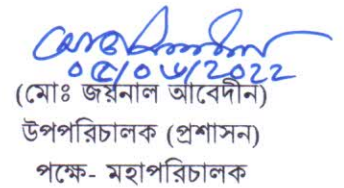 ০৫/০৬/2022
(মোঃ জয়নাল আবেদীন)
উপপরিচালক (প্রশাসন)
পক্ষে- মহাপরিচালক